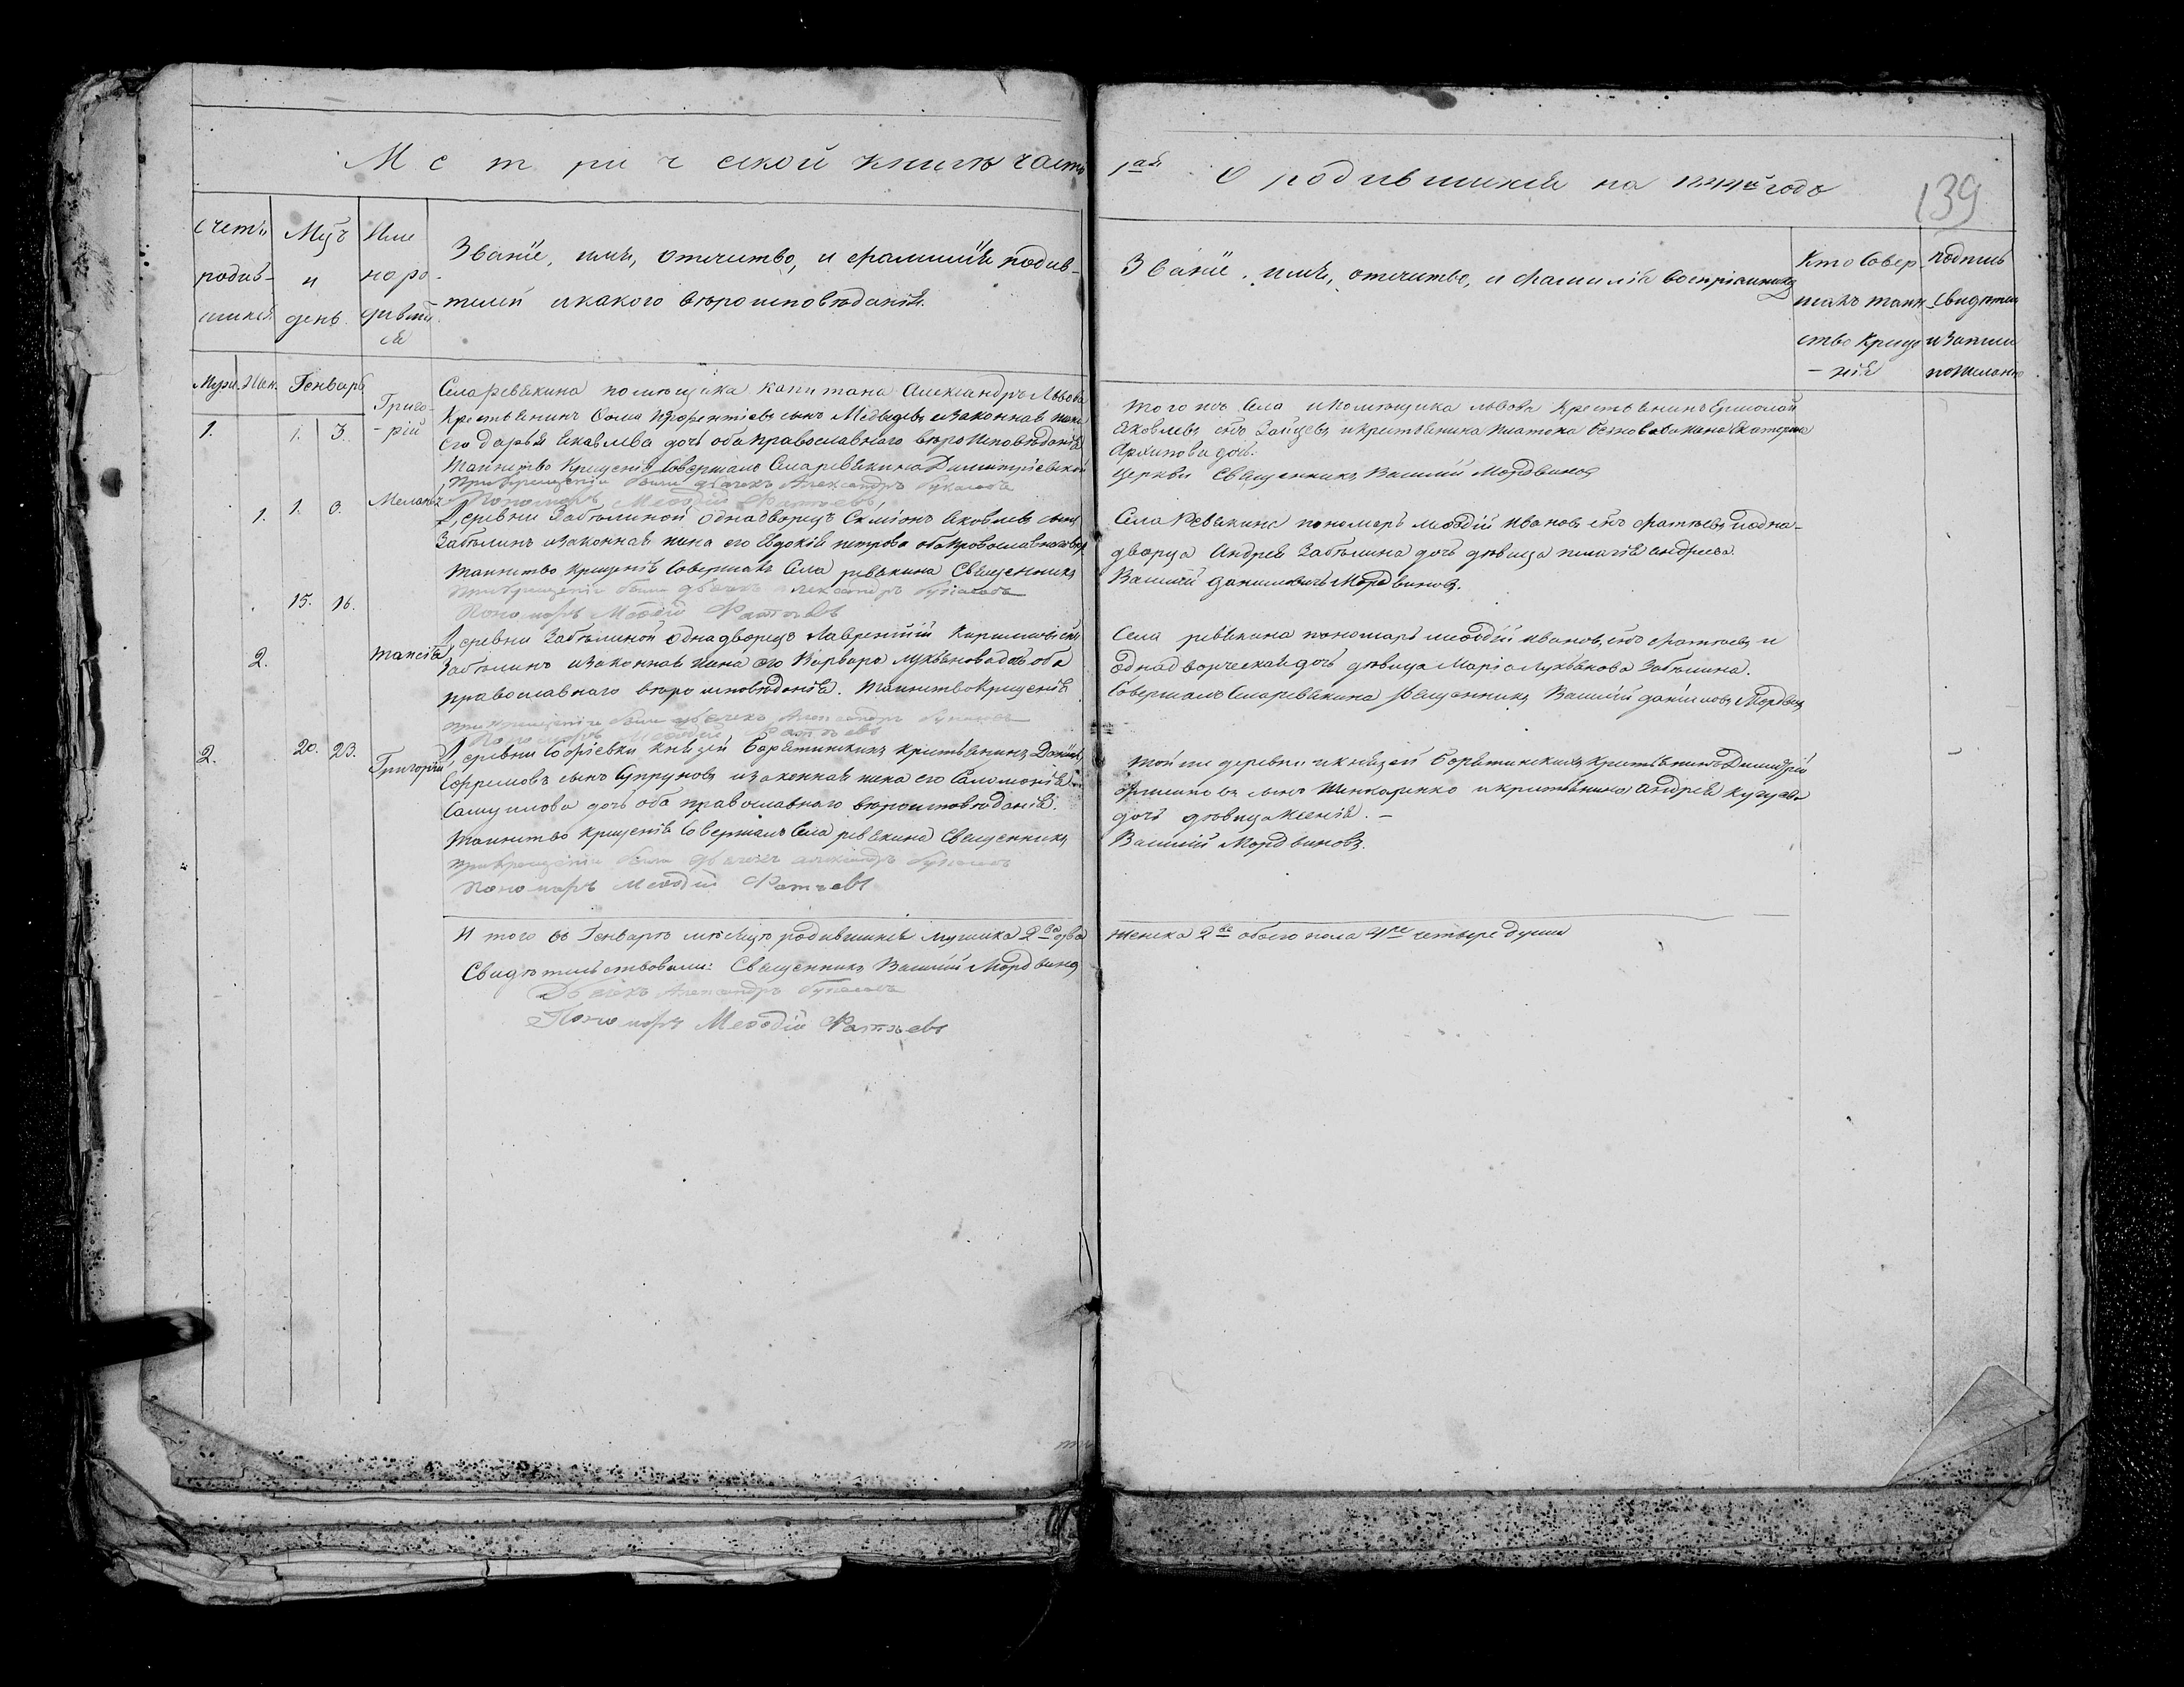 Метрической книги часть 1ая О родившихся на 1844й годъ
139
счетъ родив-шихся
Мцъ и день
Имена ро-дившихся
Званіе, имя, отечество, и фамилія родив-
телей и какого вероисповѣданія.
Званіе, имя, отечество, и фамилія воспріемниковъ
Кто Совер-шалъ таин-ство Креще-нія
подпись Свидетел и Записи по желанію
Муж. Жен. Генварь
1. 1. 3. Григо-рій
Села Ревякина помѣщика капитана Александръ Львова
Крестьянинъ Фома сынъ Медведевъ и законная жена
его Дарья Яковлева дочь оба православнаго вероисповѣданія
Таинство Крещенія Совершалъ Села ревякина Димитріевской
При Крещеніи были дьячекъ Александръ
Пономарь Меѳодій Фатѣевъ
Того жъ Села и помѣщика Львова Крестьянинъ Ермолай
Яковлевъ снъ Зайцевъ и крестьянина Платона жена Екатерина
Архипова дочь.
Церкви Священникъ Василій Мордвиновъ
1. 1. 6. Меланія
Деревни Забѣлиной однадворецъ Семіонъ Яковлевъ сынъ
Забѣлинъ и законная жена его Евдокія петрова оба православнаго вер
таинство крещенія Совершалъ Села ревякина Священникъ
При Крещеніи были дьячекъ Александръ
Пономарь Меѳодій Фатѣевъ
Села Ревякина пономарь меѳодій Иванов снъ Фатѣевъ и одна-
дворца Андрея Забѣлина дочь девица пелагія андреева
Василій Даниловичъ Мордвиновъ.
2. 15. 16. Таисія
Деревни Забѣлиной однадворецъ Лаврентій Кириловъ снъ
Забѣлинъ и законная жена его Варвара лукьянова дочь оба
православнаго вероисповѣданія. таинство Крещенія
При Крещеніи были дьячекъ Александръ
Пономарь Меѳодій Фатѣевъ
Села ревякина пономарь меѳодій иванов снъ фатѣевъ и
однадворческая дочь девица Марія Лукьянова Забѣлина.
Совершалъ Села ревякина Священникъ Василій Даниловъ Мордвин
2. 20. 23. Григорій
Деревни Софіевки Князей Барятинскихъ крестьянинъ Даніилъ
Ефремовъ сынъ Супруновъ и законная жена его Саломонія
Самуилова дочь оба православнаго вероисповѣданія.
Таинство крещенія Совершалъ Села ревякина Священникъ
При Крещеніи были дьячекъ Александръ
Пономарь Меѳодій Фатѣевъ
Той же деревни и князей Борятинскихъ Крестьянинъ Димитрій
сынъ Шинкаренко и крестьянина Андрея
дочь девица Ксенія. -
Василій Мордвиновъ.
И того въ Генварѣ мѣсяцѣ родившихся мужска 2ва два женска 2ве обоего пола 4ре четыре души
Свидѣтельствовали: Священникъ Василій Мордвинов
Дьячекъ Александръ
Пономарь Меѳодій Фатѣевъ